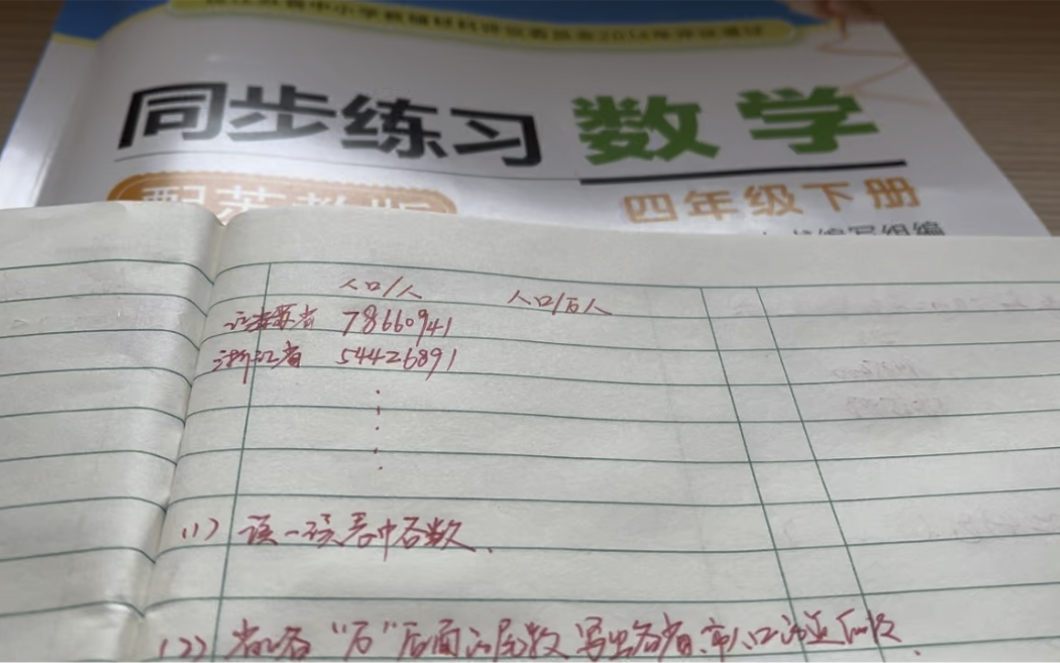 同步练习 数学
配苏教版
四年级下册
人口/人 人口/万人
江苏省 78660941
浙江省 54426891
(1) 读一读表中各数、
(2) 省略"万"后面的尾数 写出各省、市人口的近似数、